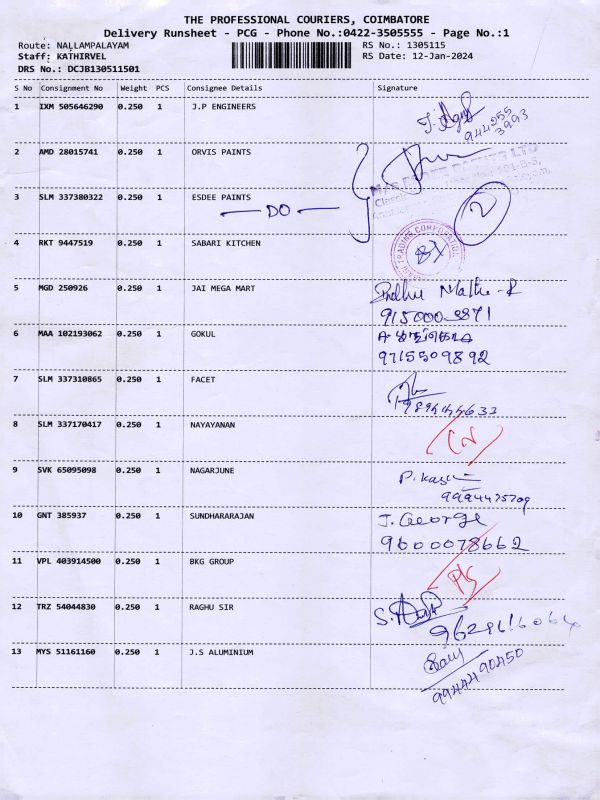 THE PROFESSIONAL COURIERS, COIMBATORE
Delivery Runsheet - PCG - Phone No.:0422-3505555 - Page No.:1
Route: NALLAMPALAYAM RS No.: 1305115
Staff: KATHIRVEL RS Date: 12-Jan-2024
DRS No.: DCJB130511501
S No Consignment No Weight PCS Consignee Details Signature
1 IXM 505646290 0.250 1 J.P ENGINEERS
944255
3993
2 AMD 28015741 0.250 1 ORVIS PAINTS
3 SLM 337380322 0.250 1 ESDEE PAINTS
DO
2
4 RKT 9447519 0.250 1 SABARI KITCHEN
TRADING CORPORATION
5 MGD 250926 0.250 1 JAI MEGA MART
6 MAA 102193062 0.250 1 GOKUL
9715509892
7 SLM 337310865 0.250 1 FACET
8 SLM 337170417 0.250 1 NAYAYANAN
9 SVK 65095098 0.250 1 NAGARJUNE
10 GNT 385937 0.250 1 SUNDHARARAJAN J. George
9600078662
11 VPL 403914500 0.250 1 BKG GROUP
12 TRZ 54044830 0.250 1 RAGHU SIR
13 MYS 51161160 0.250 1 J.S ALUMINIUM
9944490450